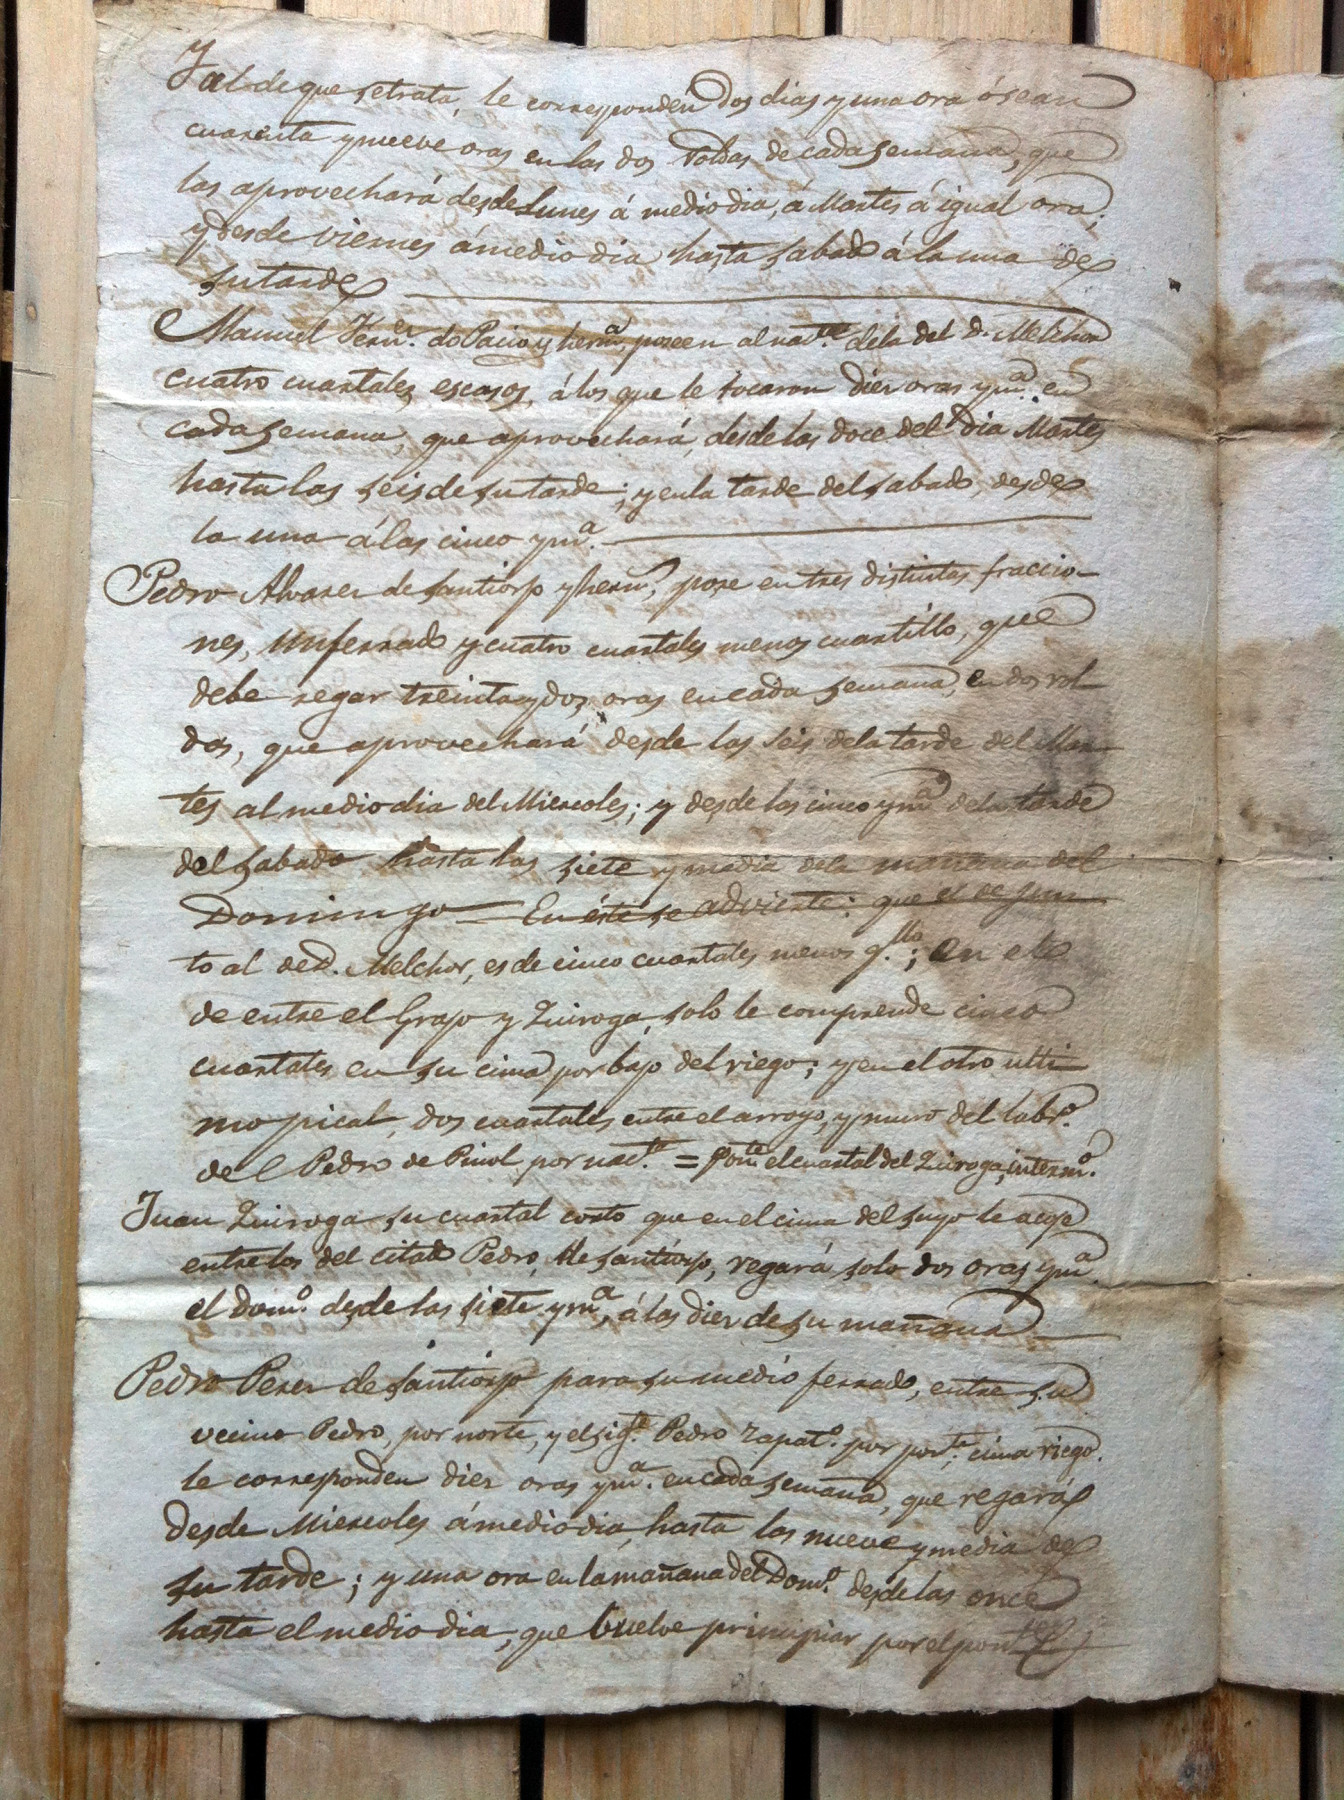 Y al de que se trata, le corresponden dos dias y una ora ó sean
cuarenta y nueve oras en las dos roldas de cada semana, que
las aprovechará desde Lunes á medio dia, á Martes á igual ora;
y desde viernes á medio dia hasta sabado á la una de
su tarde
Manuel Fern.z do Pacio y herm.a, poseen al nac.te de la del D. Melchor
cuatro cuartales escasos, á los que le tocaron diez oras y m.a en
cada semana, que aprovechará, desde las doce del dia Martes
hasta las seis de su tarde; y en la tarde del sabado, desde
la una á las cinco y m.a
Pedro Alvarez de Santiorjo y herm.s, pose en tres distintas fraccio-
nes, un ferrado y cuatro cuartales menos cuartillo, que
debe regar treinta y dos oras en cada semana, en dos rol-
das, que aprovechará desde las seis de la tarde del Mar-
tes al medio dia del Miercoles; y desde las cinco y m.a de la tarde
del sabado hasta las siete y media de la mañana del
Domingo = En éste se advierte: que el de jun-
to al de D. Melchor, es de cinco cuartales menos q.llo; en el
de entre el Grajo y Quiroga, solo le comprende cinco
cuartales en su cima por bajo del riego; y en el otro ulti-
mo pical, dos cuartales entre el arroyo, y muro del labr.o
de Pedro de Pinol por nac.te = pon.te el cuartal del Quiroga, interm.o
Juan Quiroga su cuartal corto que en el cima del suyo le acoje
entre los del citado Pedro, de Santiorjo, regará solo dos oras y m.a
el Dom.o desde las siete y m.a, á las diez de su mañana
Pedro Perez de Santiorjo para su medio ferrado, entre su
vecino Pedro, por norte, y el sig.te Pedro Zapat.o por pon.te, cima riego.
le corresponden diez oras y m.a en cada semana, que regará
desde Miercoles á medio dia, hasta las nueve y media de
su tarde; y una ora en la mañana del Dom.o desde las once
hasta el medio dia, que buelve principiar por el pon.te